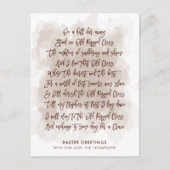 On a hill far away
Stood an Old Rugged Cross
The emblem of suffering and shame
And I love that Old Cross
Where the dearest and the best
For a world of lost sinners was slain
So I'll cherish the Old Rugged Cross
Till my trophies at last I lay down
I will cling to the Old Rugged Cross
And exchange it some day for a Crown
EASTER GREETINGS
WITH OUR LOVE, THE THOMPSONS